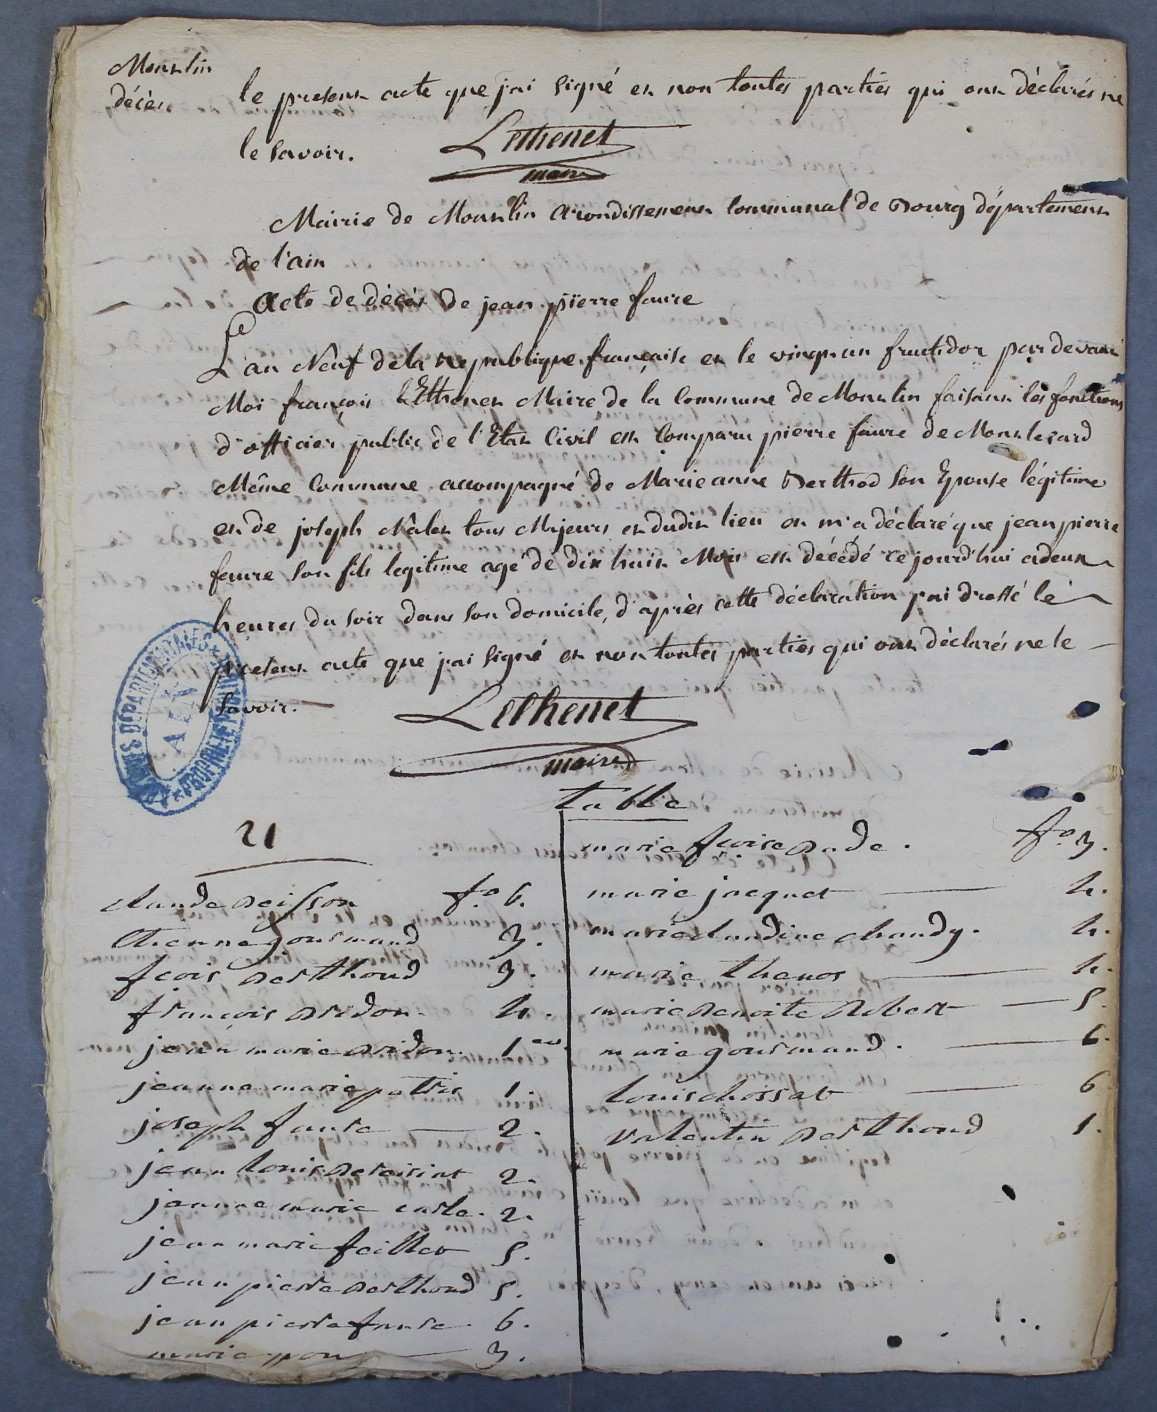 Montlin
décès
le present acte que j'ai signé et non toutes parties qui ont déclarés ne
le savoir. Lethenet
maire
Mairie de Montlin arondissement Communal de Bourg département
de l'ain
Acte de décès de jean pierre faure
L'an Neuf de la Republique française et le vingt un fructidor par devant
Moi françois Lethenet Maire de la Commune de Montlin faisant les fonctions
d'officier public de l'Etat Civil est Comparu pierre faure de Montlezard
Même Commune accompagné de Marie anne Berthod son Epouse légitime
et de joseph Nalet tous Majeurs et dudit lieu on m'a déclaré que jean pierre
faure son fils legitime age de dix huit Mois est décédé ce jourd'hui a deux
heures du soir dans son domicile, d'après cette déclaration j'ai dressé le
present acte que j'ai signé et non toutes parties qui ont déclarés ne le
savoir.
Lethenet
maire
ARCHIVES DÉPARTEMENTALES
AIN
PROPRIÉTÉ PUBLIQUE
table
21
claude Buisson fo 6.
Etienne gourmand 3.
fcois Berthoud 3.
françois Bridon 4.
jean marie Bridon 1er
jeanne marie patris 1.
joseph faure 2.
jean Louis 2.
jeanne marie carle 2.
jean marie feillet 5.
jean pierre Berthoud 5.
jean pierre faure 6.
marie 3.
marie fcoise Bade fo 3.
marie jacquet 4.
marie claudine chaudy 4.
marie thenos 4.
marie Benoite Robert 5.
marie gourmand 6.
Louis chossat 6
valentin Berthoud 1.